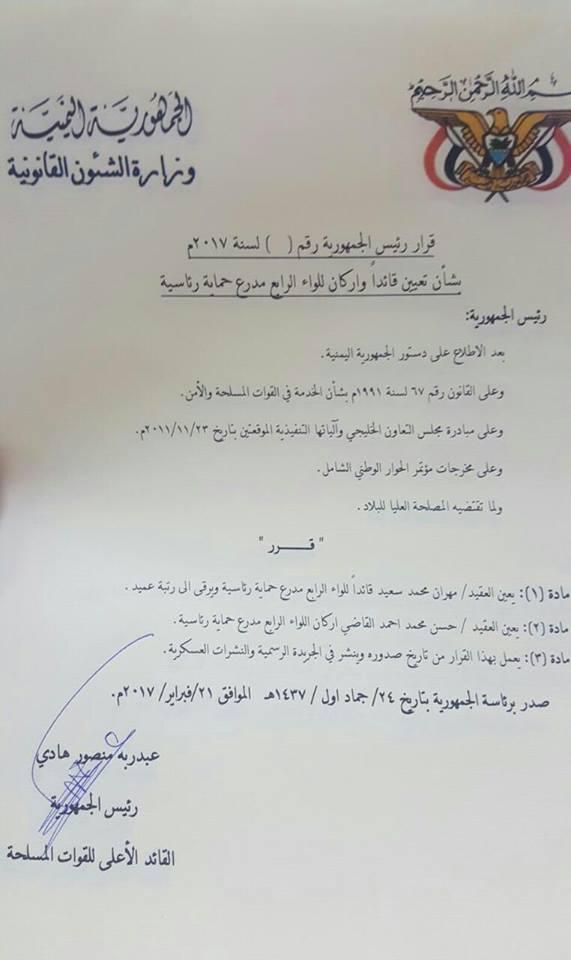 بسم الله الرحمن الرحيم
الجمهورية اليمنية
وزارة الشئون القانونية
قرار رئيس الجمهورية رقم (   ) لسنة ٢٠١٧م
بشأن تعيين قائداً واركان للواء الرابع مدرع حماية رئاسية
رئيس الجمهورية:
بعد الاطلاع على دستور الجمهورية اليمنية .
وعلى القانون رقم ٦٧ لسنة ١٩٩١م بشأن الخدمة في القوات المسلحة والأمن.
وعلى مبادرة مجلس التعاون الخليجي وآلياتها التنفيذية الموقعتين بتاريخ ٢٠١١/١١/٢٣م.
وعلى مخرجات مؤتمر الحوار الوطني الشامل.
ولما تقتضيه المصلحة العليا للبلاد .
" قـــــرر "
مادة (١): يعين العقيد/ مهران محمد سعيد قائداً للواء الرابع مدرع حماية رئاسية ويرقى الى رتبة عميد .
مادة (٢): يعين العقيد / حسن محمد احمد القاضي اركان اللواء الرابع مدرع حماية رئاسية.
مادة (٣): يعمل بهذا القرار من تاريخ صدوره وينشر في الجريدة الرسمية والنشرات العسكرية.
صدر برئاسة الجمهورية بتاريخ ٢٤/ جماد اول / ١٤٣٧هـ الموافق ٢١/فبراير/ ٢٠١٧م.
عبدربه منصور هادي
رئيس الجمهورية
القائد الأعلى للقوات المسلحة